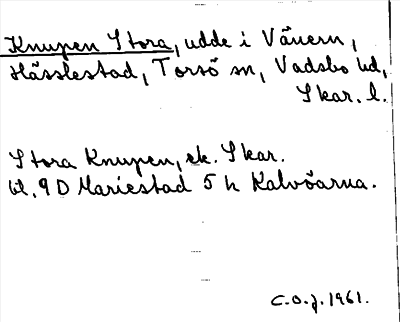 Knupen Stora, udde i Vänern,
Hässlestad, Torsö sn, Vadsbo hd,
Skar. l.
Stora Knupen, ek. Skar.
bl. 9 D Mariestad 5 h Kalvöarna.
C.O.J. 1961.